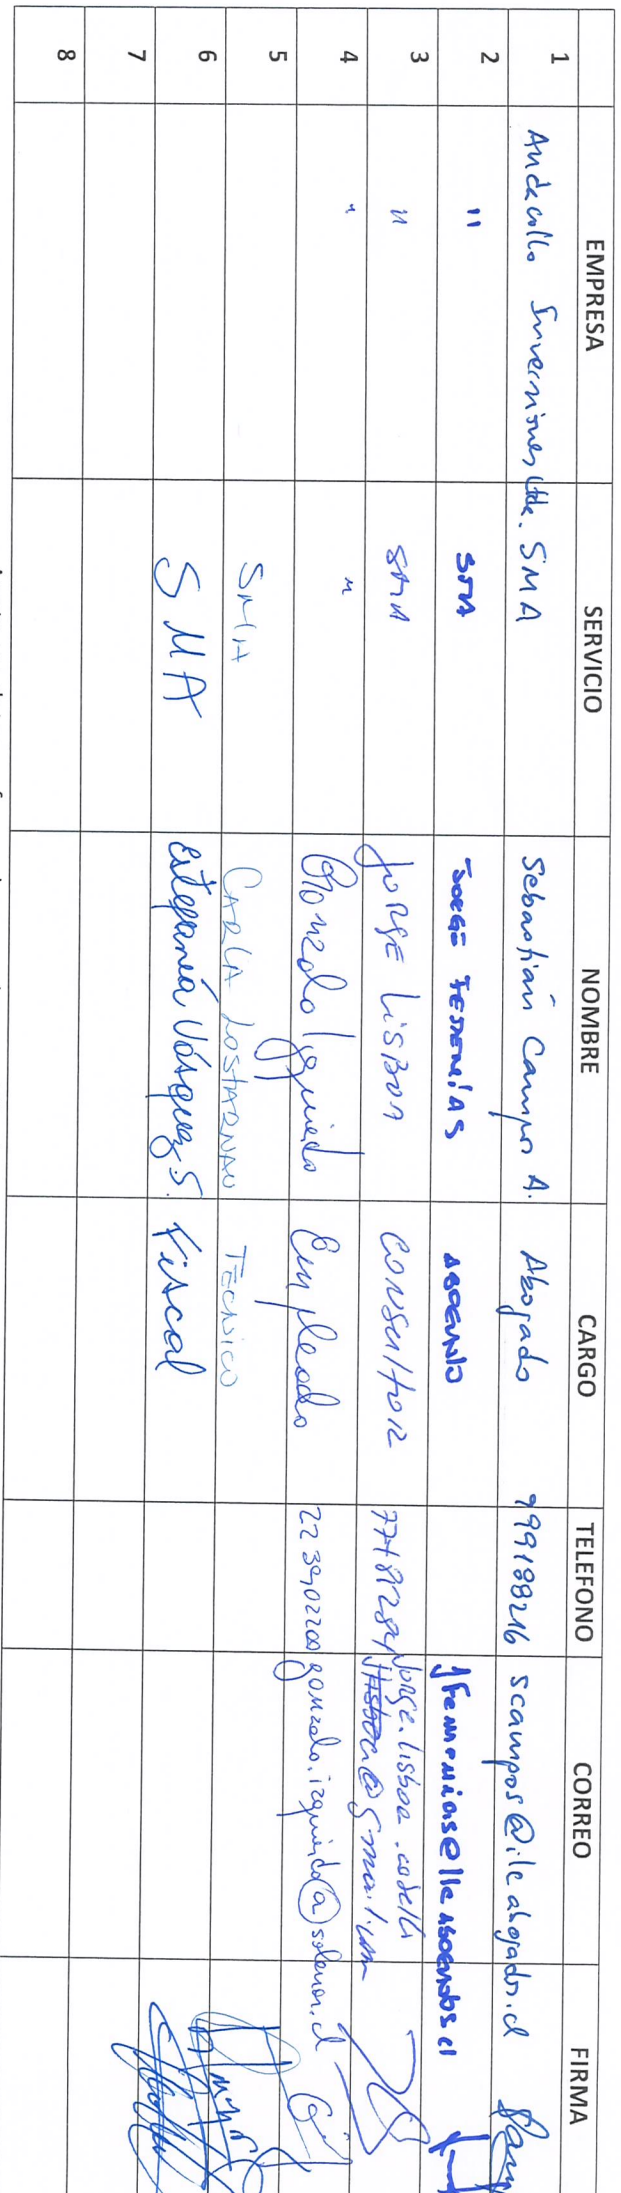 EMPRESA SERVICIO NOMBRE CARGO TELEFONO CORREO FIRMA
1 Andacollo Inversiones Ltda. SMA Sebastián Campos A. Abogado 999188216 scampos@ileabogados.cl
2 " SMA JORGE FEMENÍAS ABOGADO jfemenias@ileabogados.cl
3 " SMA JORGE LISBOA CONSULTOR jorge.lisboa. @gmail.com
4 " " Gonzalo Izquierdo Empleado 223902200 gonzalo.izquierdo@solenor.cl
5 SMA CARLA TÉCNICO
6 SMA Estefanía Vásquez S. Fiscal
7
8